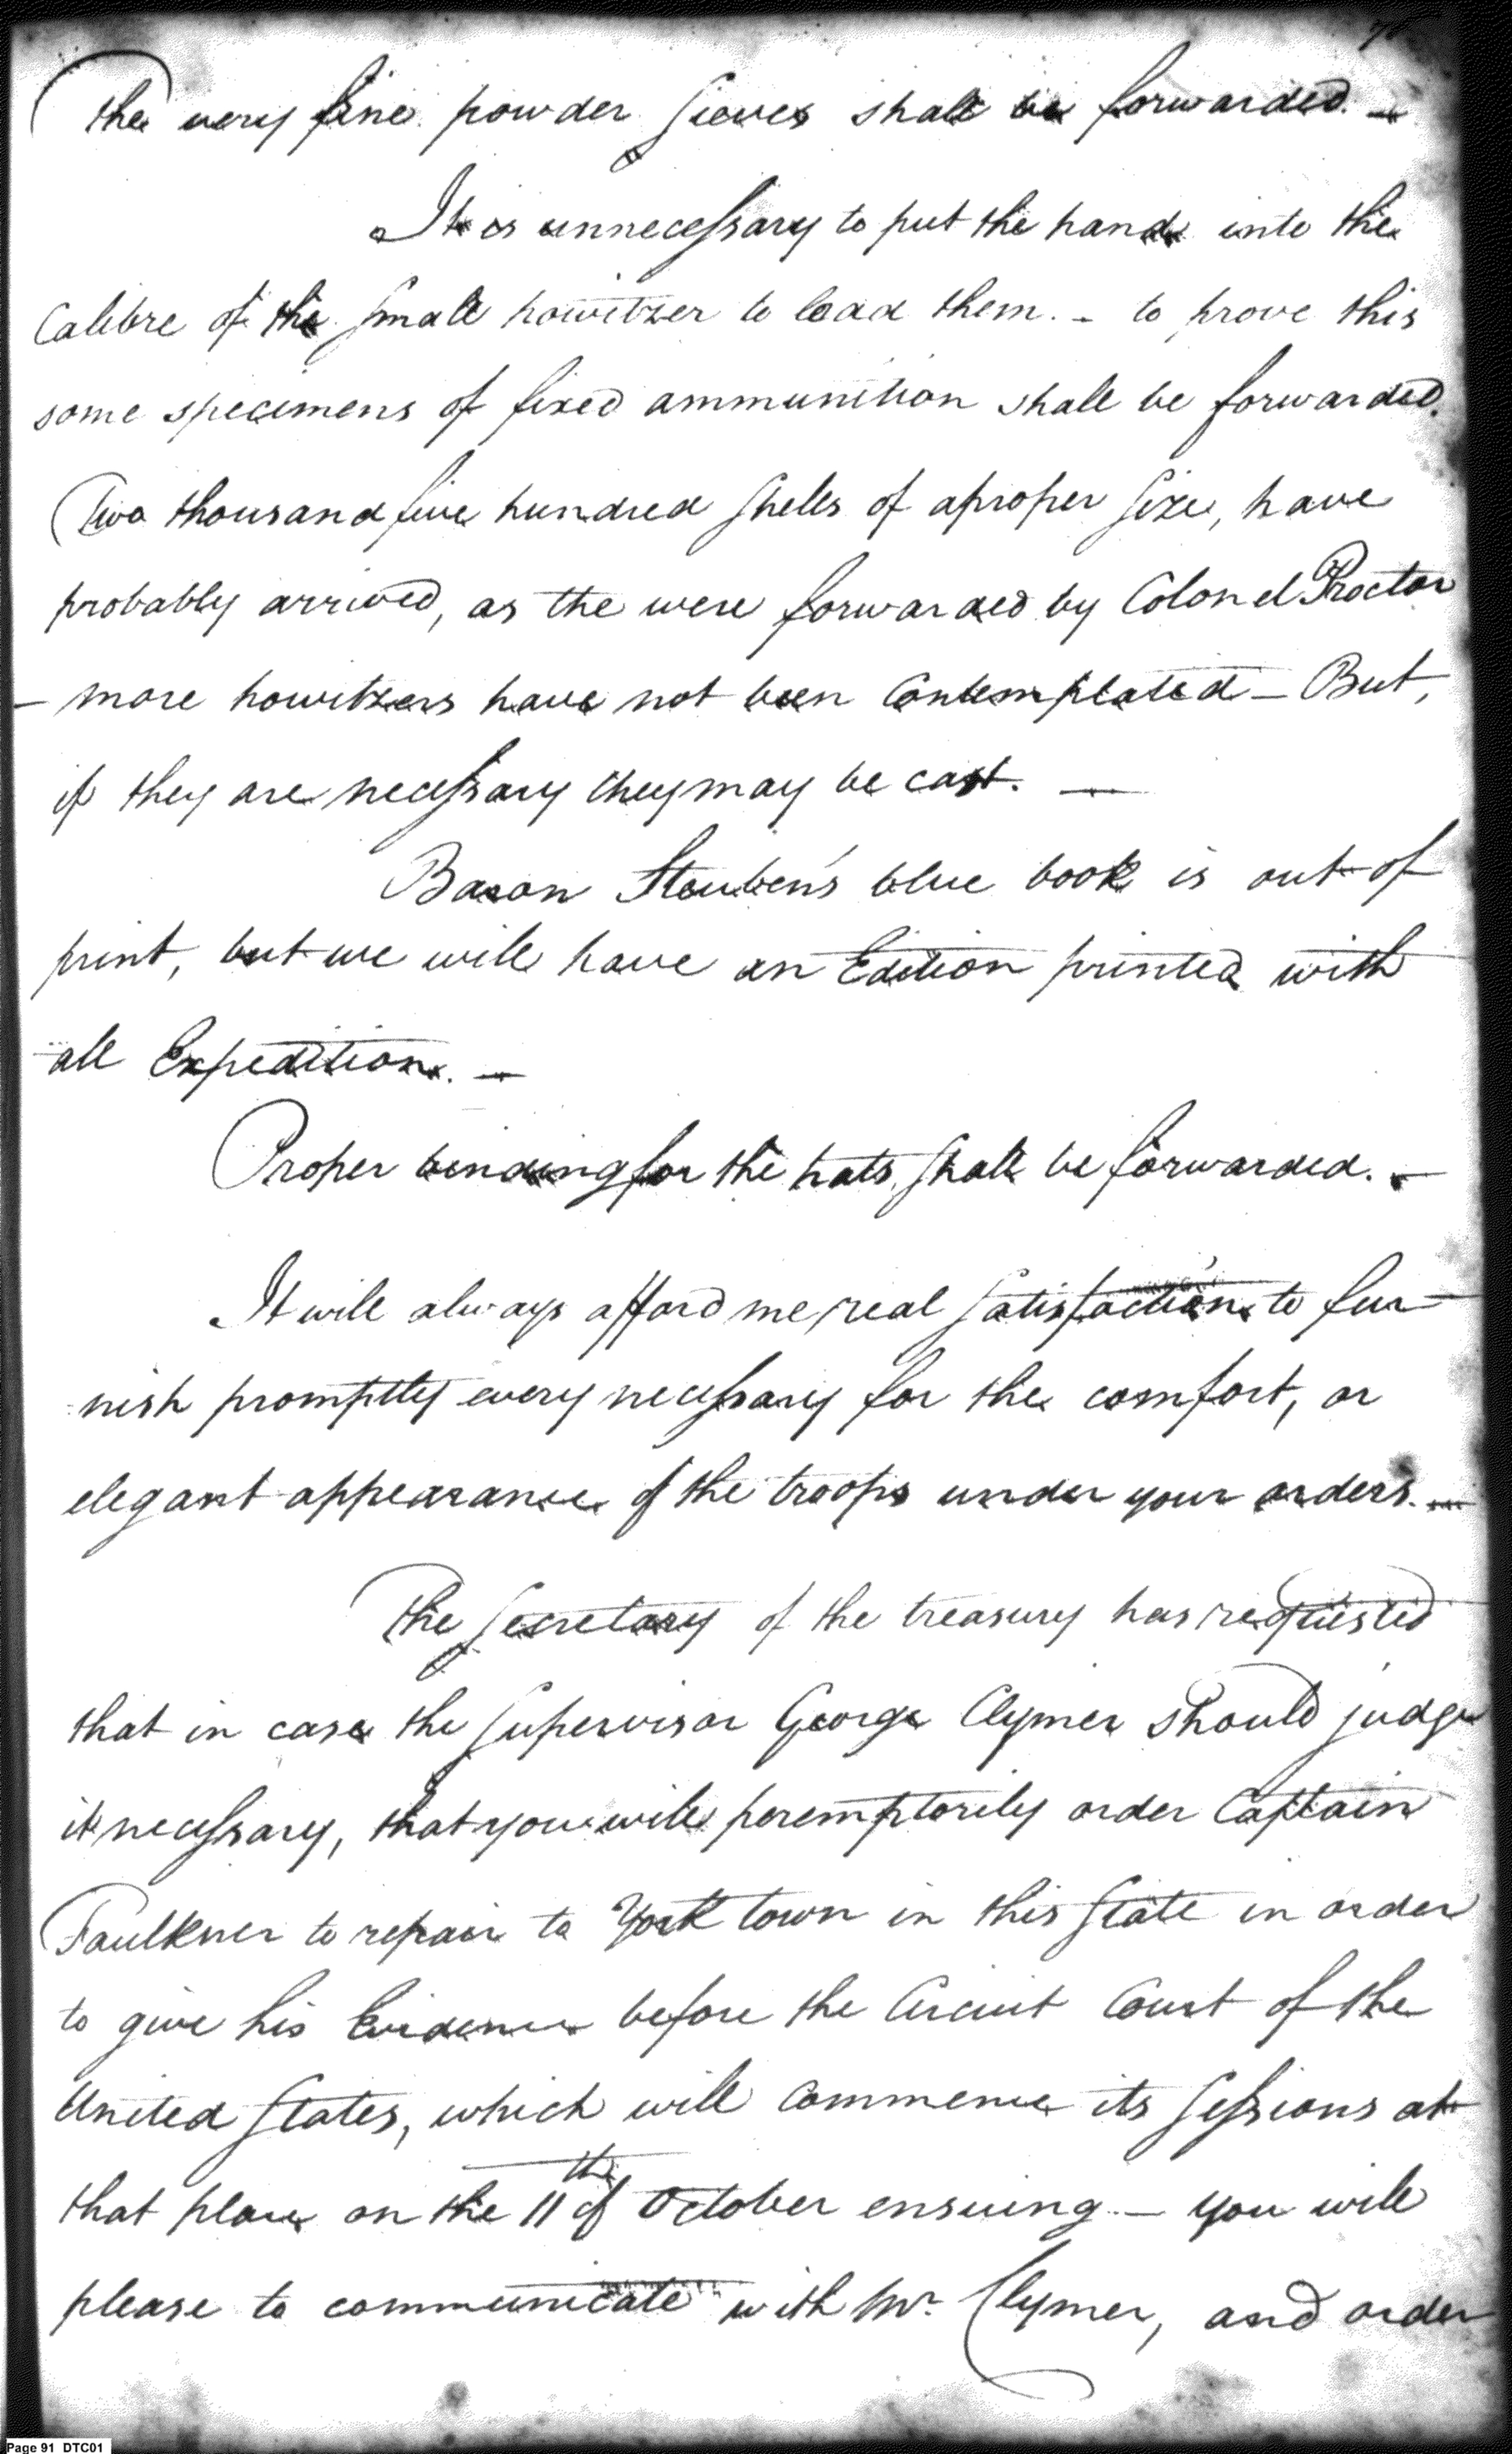 The very fine powder sieves shall be forwarded. —
It is unnecessary to put the hands into the
Calibre of the small howitzer to load them. – to prove this
some specimens of fixed ammunition shall be forwarded.
Two thousand five hundred shells of a proper size, have
probably arrived, as the were forwarded by Colonel Proctor
– more howitzers have not been Contemplated – But,
if they are necessary they may be cast. —
Baron Steuben's blue book is out of
print, but we will have an Edition printed with
all Expedition. —
Proper binding for the hats, shall be forwarded. —
It will always afford me real satisfaction to fur
nish promptly every necessary for the comfort, or
elegant appearance of the troops under your orders. —
The Secretary of the treasury has requested
that in case the Supervisor George Clymer should judge
it necessary, that you will peremptorily order Captain
Faulkner to repair to York town in this State in order
to give his Evidence before the Circuit Court of the
United States, which will commence its sessions at
that place on the 11th of October ensuing – you will
please to communicate with Mr. Clymer, and order
Page 91 DTC01